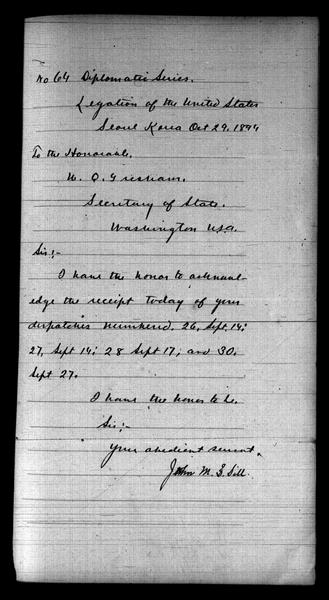 No 64 Diplomatic Series.
Legation of the United States
Seoul Korea Oct 29. 1894
To the Honorable.
W. Q. Gresham.
Secretary of State.
Washington U.S.a.
Sir:-
I have the honor to acknowl-
edge the receipt today of your
dispatches numbered. 26, Sept. 14:
27, Sept 14: 28 Sept 17; and 30.
Sept 27.
I have the honor to be.
Sir:-
Your obedient servant.
John M. B. Sill